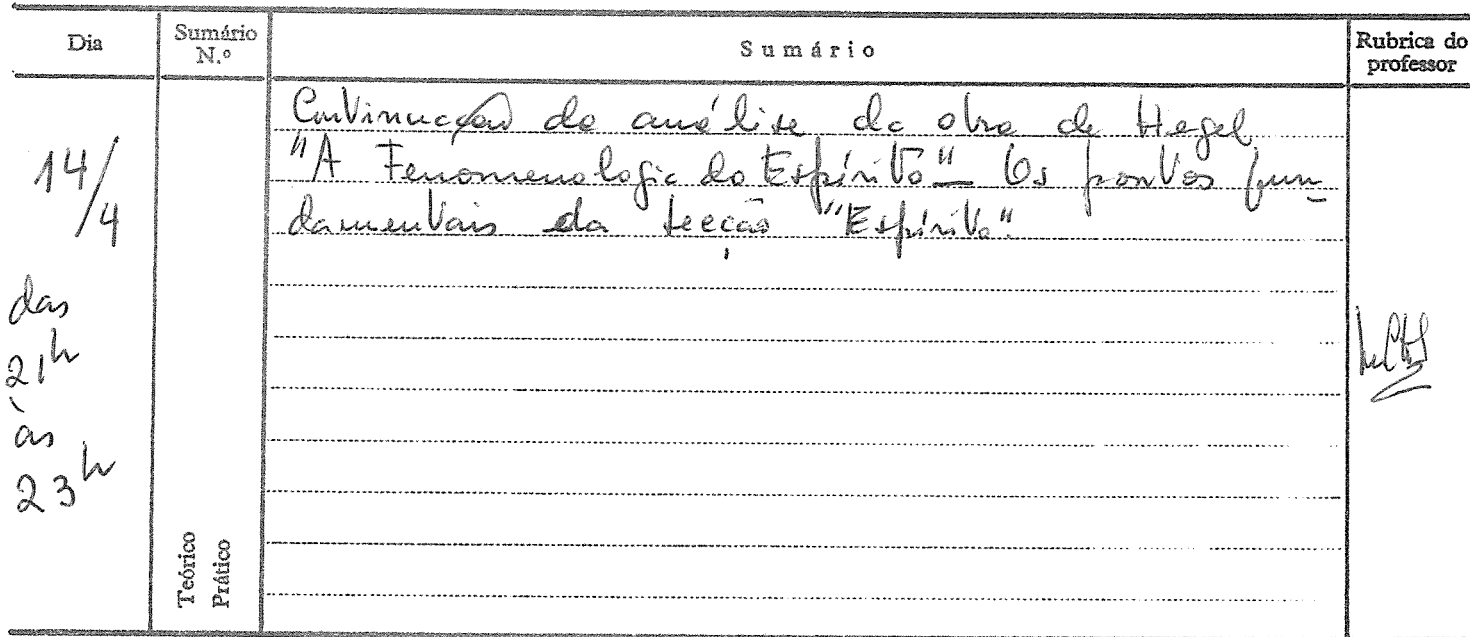 Dia
Sumário N.º
Sumário
Rubrica do professor
14/4
das
21h
às
23h
Continuação da análise da obra de Hegel
"A Fenomenologia do Espírito" — Os pontos fun-
damentais da secção "Espírito".
Teórico
Prático